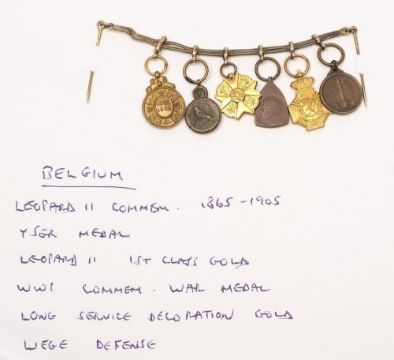 BELGIUM
LEOPARD II COMMEM. 1865-1905
YSER MEDAL
LEOPARD II 1ST CLASS GOLD
WW1 COMMEM. WAR MEDAL
LONG SERVICE DECORATION GOLD
LIEGE DEFENSE